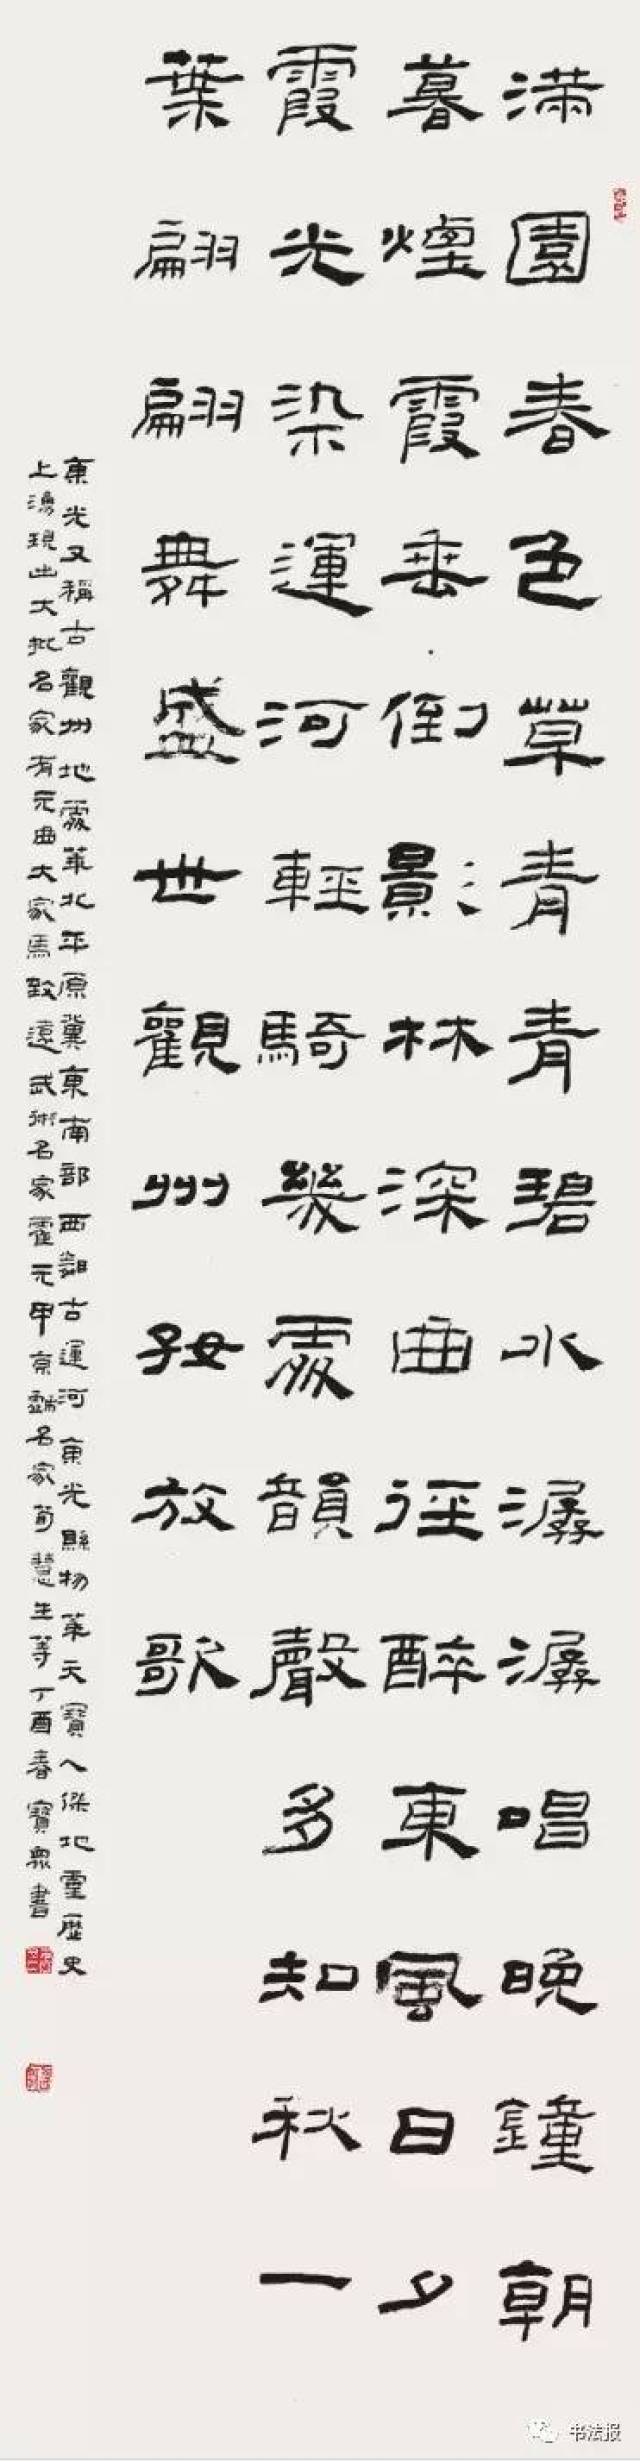 满園春色草青青碧水潺潺唱晚鐘朝
暮煙霞垂倒影林深曲徑醉東風日夕
霞光染運河輕騎幾處韻聲多知秋一
葉翩翩舞盛世觀州好放歌
東光又稱古觀州地處華北平原冀東南部西鄰古運河東光縣物華天寶人傑地靈歷史
上湧現出大批名家有元曲大家馬致遠武術名家霍元甲京劇名家荀慧生等丁酉春寶眾書
书法报